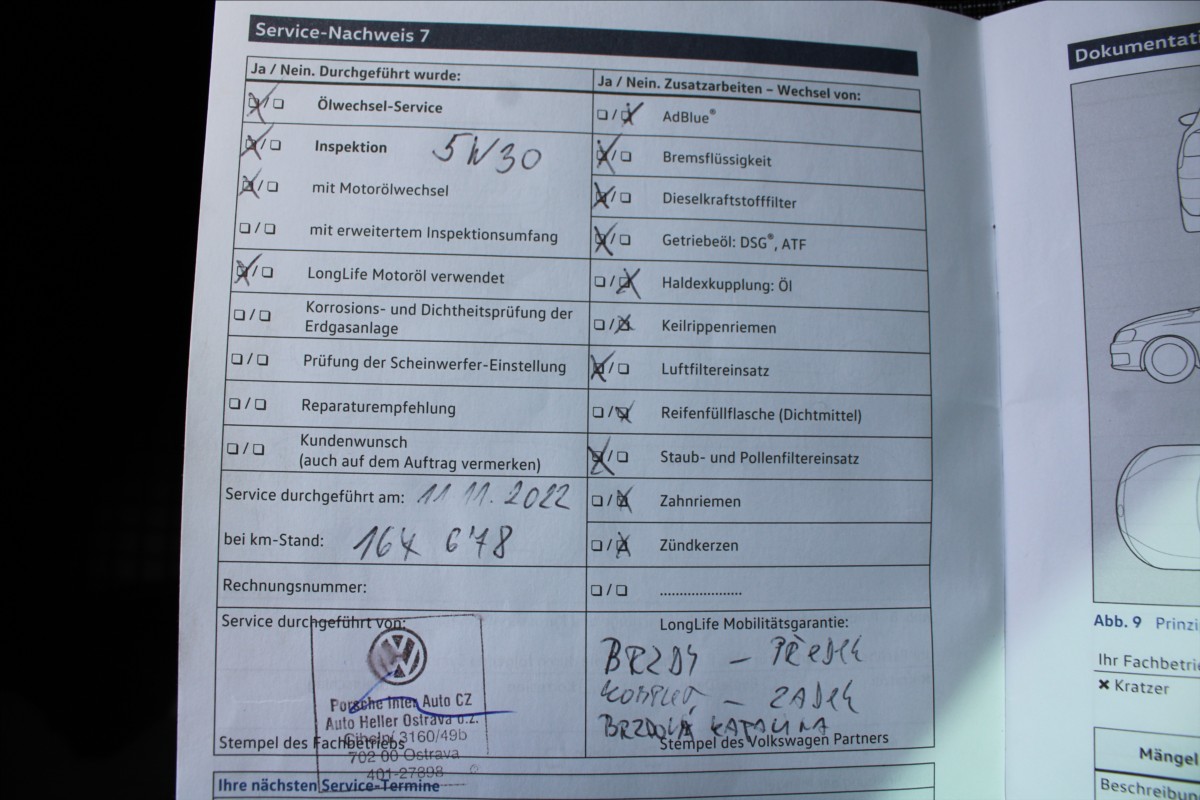 Service-Nachweis 7
Ja / Nein. Durchgeführt wurde:
❏ / ❏ Ölwechsel-Service
❏ / ❏ Inspektion 5W30
❏ / ❏ mit Motorölwechsel
❏ / ❏ mit erweitertem Inspektionsumfang
❏ / ❏ LongLife Motoröl verwendet
❏ / ❏ Korrosions- und Dichtheitsprüfung der
Erdgasanlage
❏ / ❏ Prüfung der Scheinwerfer-Einstellung
❏ / ❏ Reparaturempfehlung
❏ / ❏ Kundenwunsch
(auch auf dem Auftrag vermerken)
Service durchgeführt am: 11 11. 2022
bei km-Stand: 678
Rechnungsnummer:
Service durchgeführt von:
Porsche Inter Auto CZ
Auto Heller Ostrava o.z.
3160/49b
702 00 Ostrava
401-27898
Stempel des Fachbetriebs
Ja / Nein. Zusatzarbeiten – Wechsel von:
❏ / ❏ AdBlue®
❏ / ❏ Bremsflüssigkeit
❏ / ❏ Dieselkraftstofffilter
❏ / ❏ Getriebeöl: DSG®, ATF
❏ / ❏ Haldexkupplung: Öl
❏ / ❏ Keilrippenriemen
❏ / ❏ Luftfiltereinsatz
❏ / ❏ Reifenfüllflasche (Dichtmittel)
❏ / ❏ Staub- und Pollenfiltereinsatz
❏ / ❏ Zahnriemen
❏ / ❏ Zündkerzen
❏ / ❏ .....................
LongLife Mobilitätsgarantie:
BRZDY – PŘEDEK
KOMPLET – ZADEK
BRZDOVÁ KAPALINA
Stempel des Volkswagen Partners
Ihre nächsten Service-Termine
Dokumentati
Abb. 9 Prinzi
Ihr Fachbetrie
✖ Kratzer
Mängel
Beschreibun